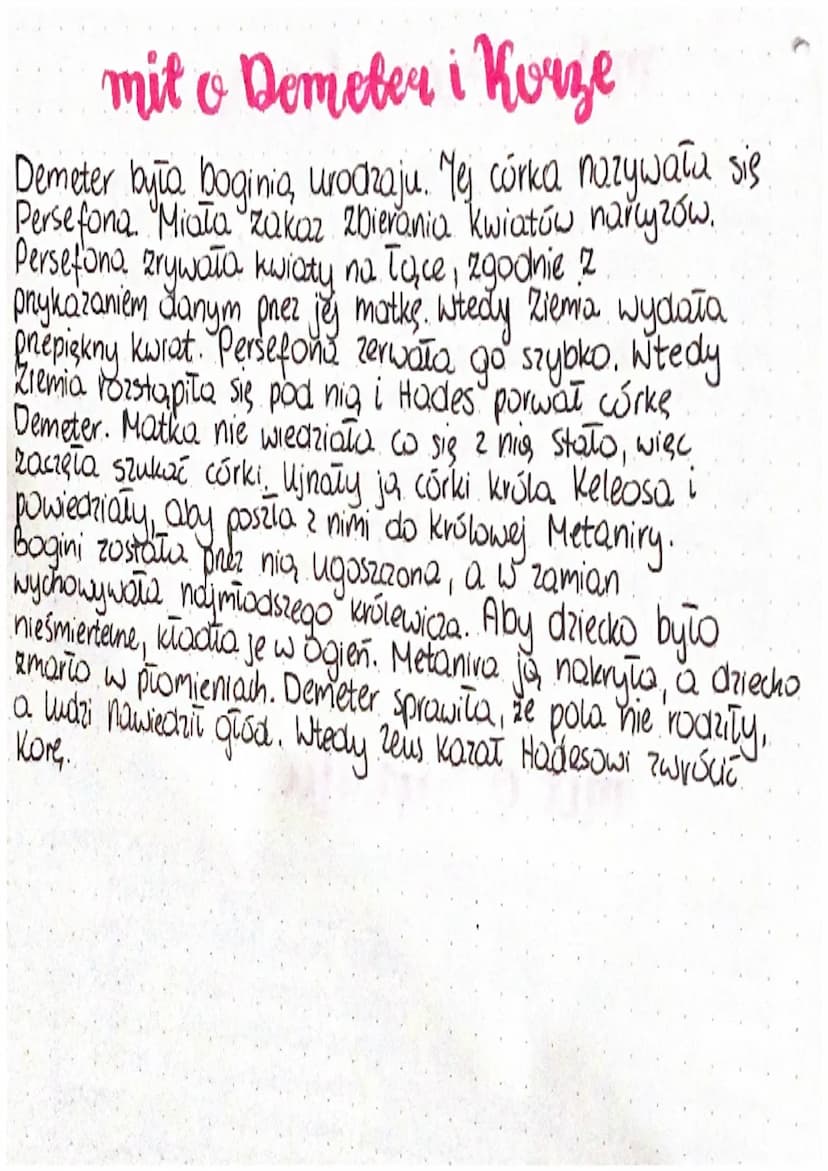 mit o Demeter i Korze
Demeter była boginią urodzaju. Jej córka nazywała się
Persefona. Miała zakaz zbierania kwiatów narcyzów.
Persefona zrywała kwiaty na łące, zgodnie z
przykazaniem danym przez jej matkę. Wtedy Ziemia wydała
przepiękny kwiat. Persefona zerwała go szybko. Wtedy
Ziemia rozstąpiła się pod nią i Hades porwał córkę
Demeter. Matka nie wiedziała co się z nią stało, więc
zaczęła szukać córki. Ujrzały ją córki króla Keleosa i
powiedziały, aby poszła z nimi do królowej Metaniry.
Bogini została przez nią ugoszczona, a w zamian
wychowywała najmłodszego królewicza. Aby dziecko było
nieśmiertelne, kładła je w ogień. Metanira ją nakryła, a dziecko
zmarło w płomieniach. Demeter sprawiła, że pola nie rodziły,
a ludzi nawiedził głód. Wtedy Zeus kazał Hadesowi zwrócić
Korę.